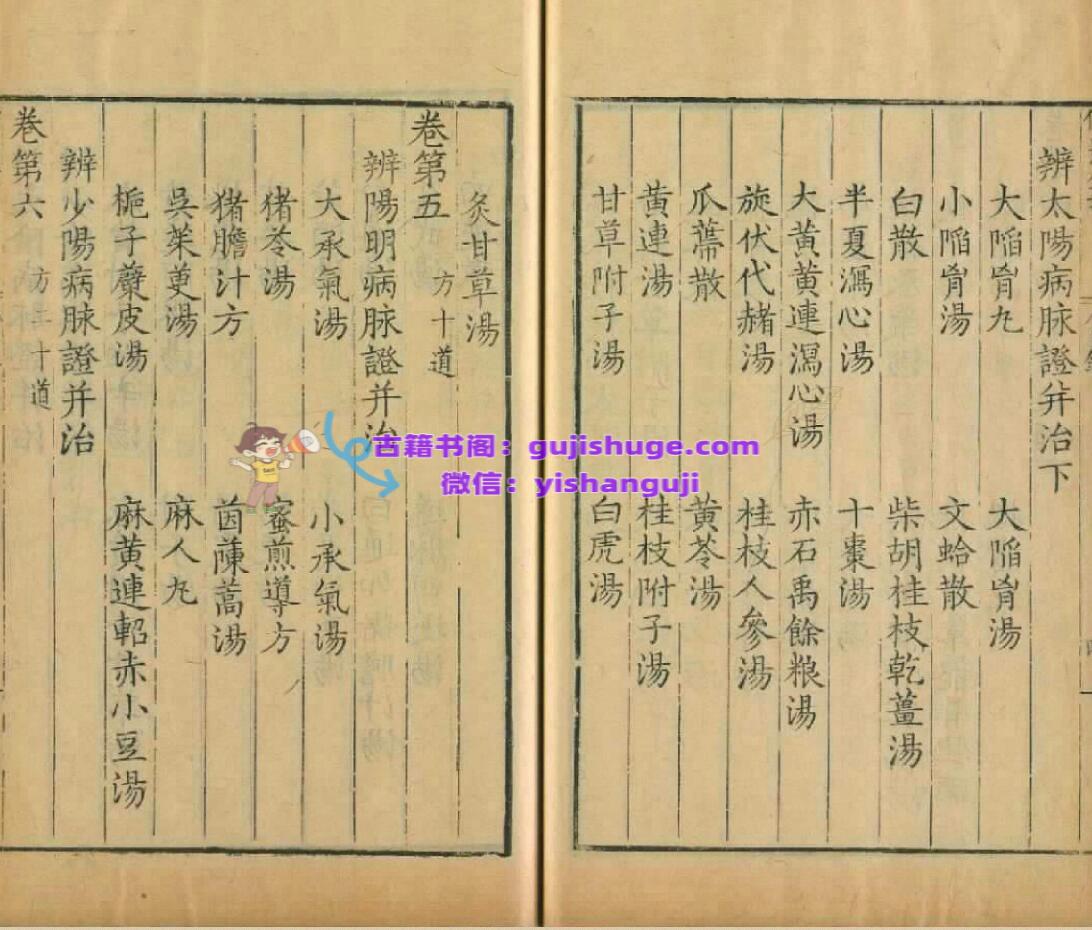 辨太陽病脉證并治下
大陷胷丸 大陷胷湯
小陷胷湯 文蛤散
白散 柴胡桂枝乾薑湯
半夏瀉心湯 十棗湯
大黃黃連瀉心湯 赤石禹餘粮湯
旋伏代赭湯 桂枝人參湯
瓜蔕散 黃芩湯
黃連湯 桂枝附子湯
甘草附子湯 白虎湯
炙甘草湯
卷第五 方十道
辨陽明病脉證并治
大承氣湯 小承氣湯
猪苓湯 蜜煎導方
猪膽汁方 茵蔯蒿湯
吳茱萸湯 麻人丸
梔子蘗皮湯 麻黃連軺赤小豆湯
辨少陽病脉證并治
卷第六 方二十道
古籍书阁：gujishuge.com
微信：yishanguji